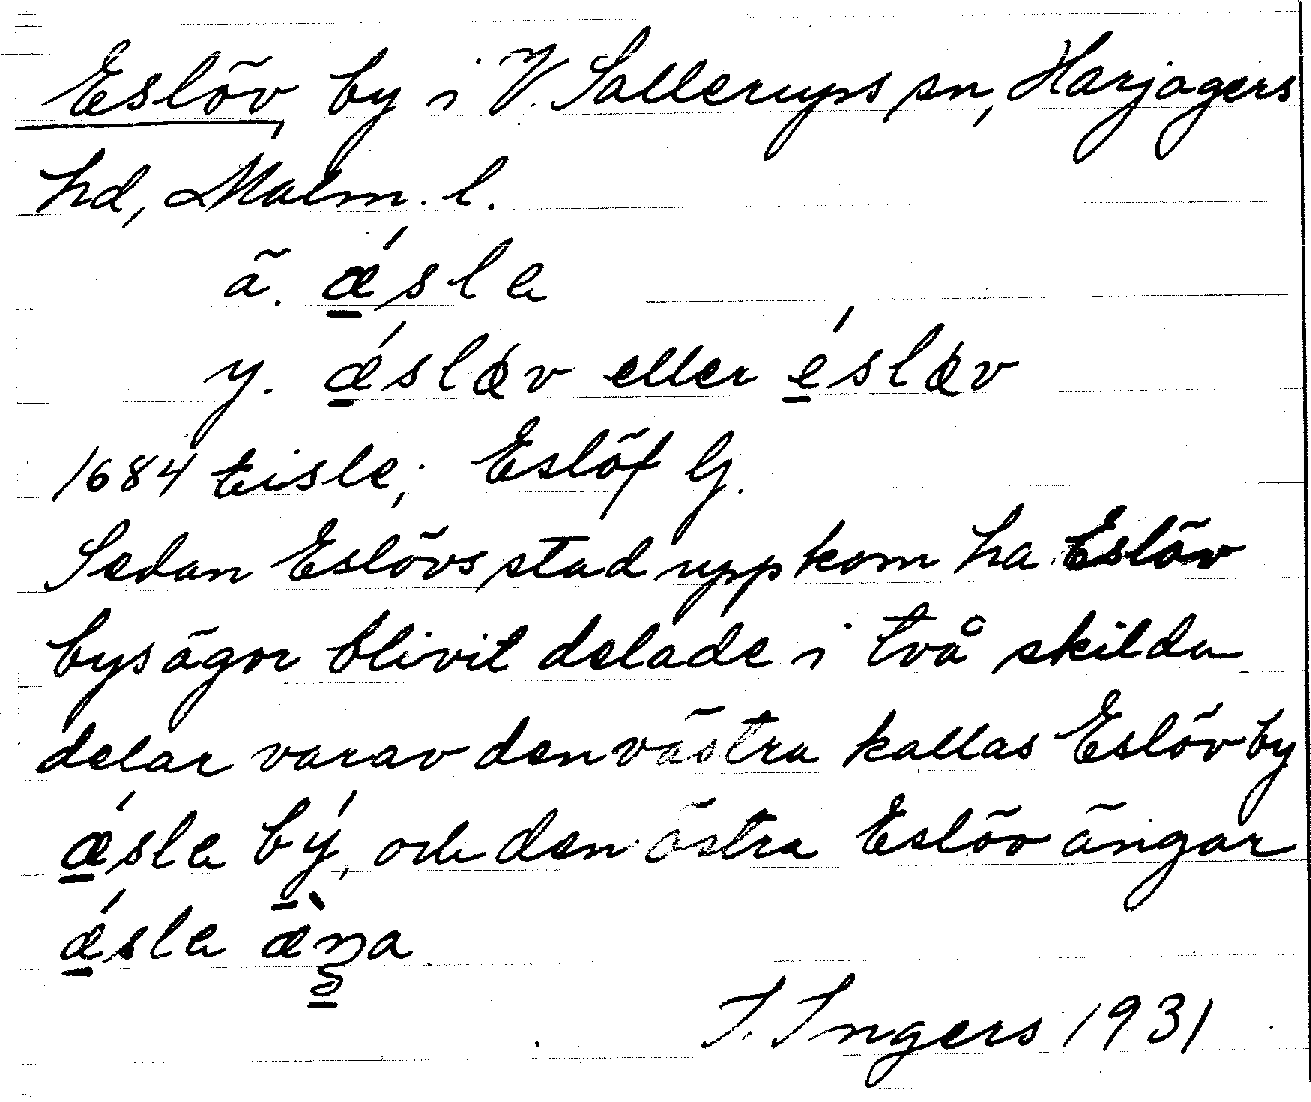 Eslöv, by i V. Sallerups sn, Harjagers
hd, Malm. l.
ä. ǽsle
y. ǽsløv eller ésløv
1684 Eisle; Eslöf G.
Sedan Eslövs stad uppkom ha Eslöv
bysägor blivit delade i två skilda
delar varav den västra kallas Eslöv by
ǽsle bý, och den östra Eslöv ängar
ǽsle æ̀ŋa
I. Ingers 1931